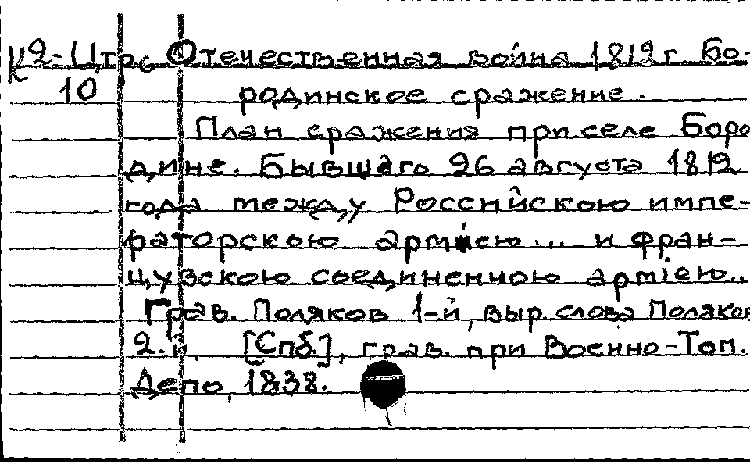 К 2-Цтрб Отечественная война 1812 г. Бо-
10 родинское сражение.
План сражения при селе Боро
дине. Бывшаго 26 августа 1812
года между Российскою импе-
раторскою армiею... и фран-
цузскою соединенною армiею..
Грав. Поляков 1-й, выр. слова Поляков
2-й. [Спб.], грав. при Военно-Топ.
Депо, 1838.